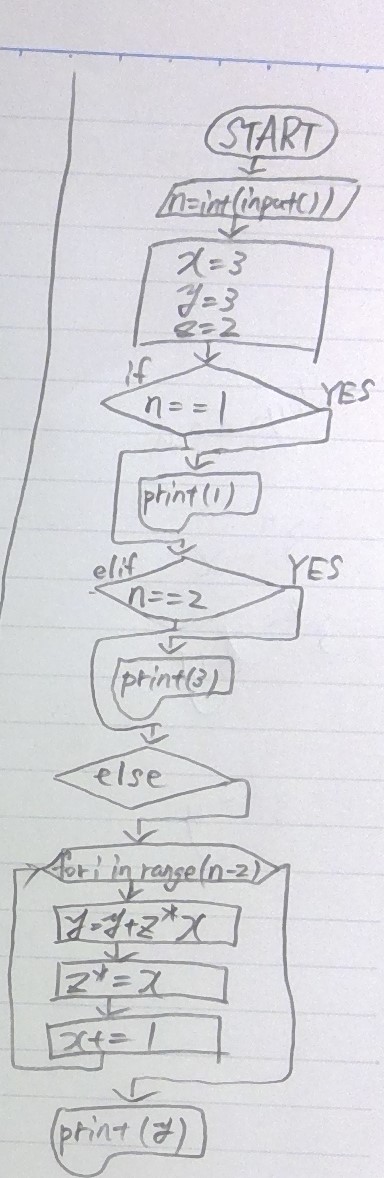 START
n=int(input())
x=3
y=3
z=2
if
n==1
YES
print(1)
elif
n==2
YES
print(3)
else
for i in range(n-2)
y=y+z*x
z*=x
x+=1
print(y)